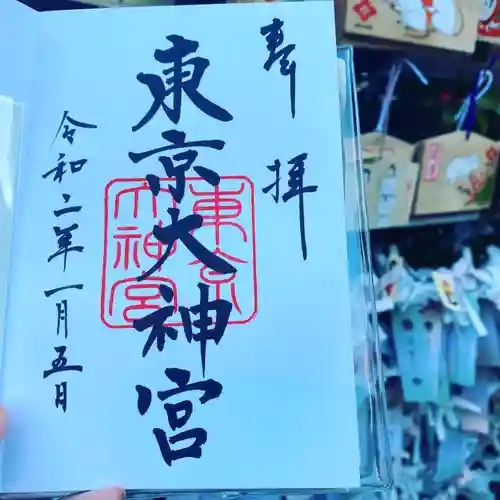 奉拝
東京大神宮
東京大神宮
令和二年一月五日